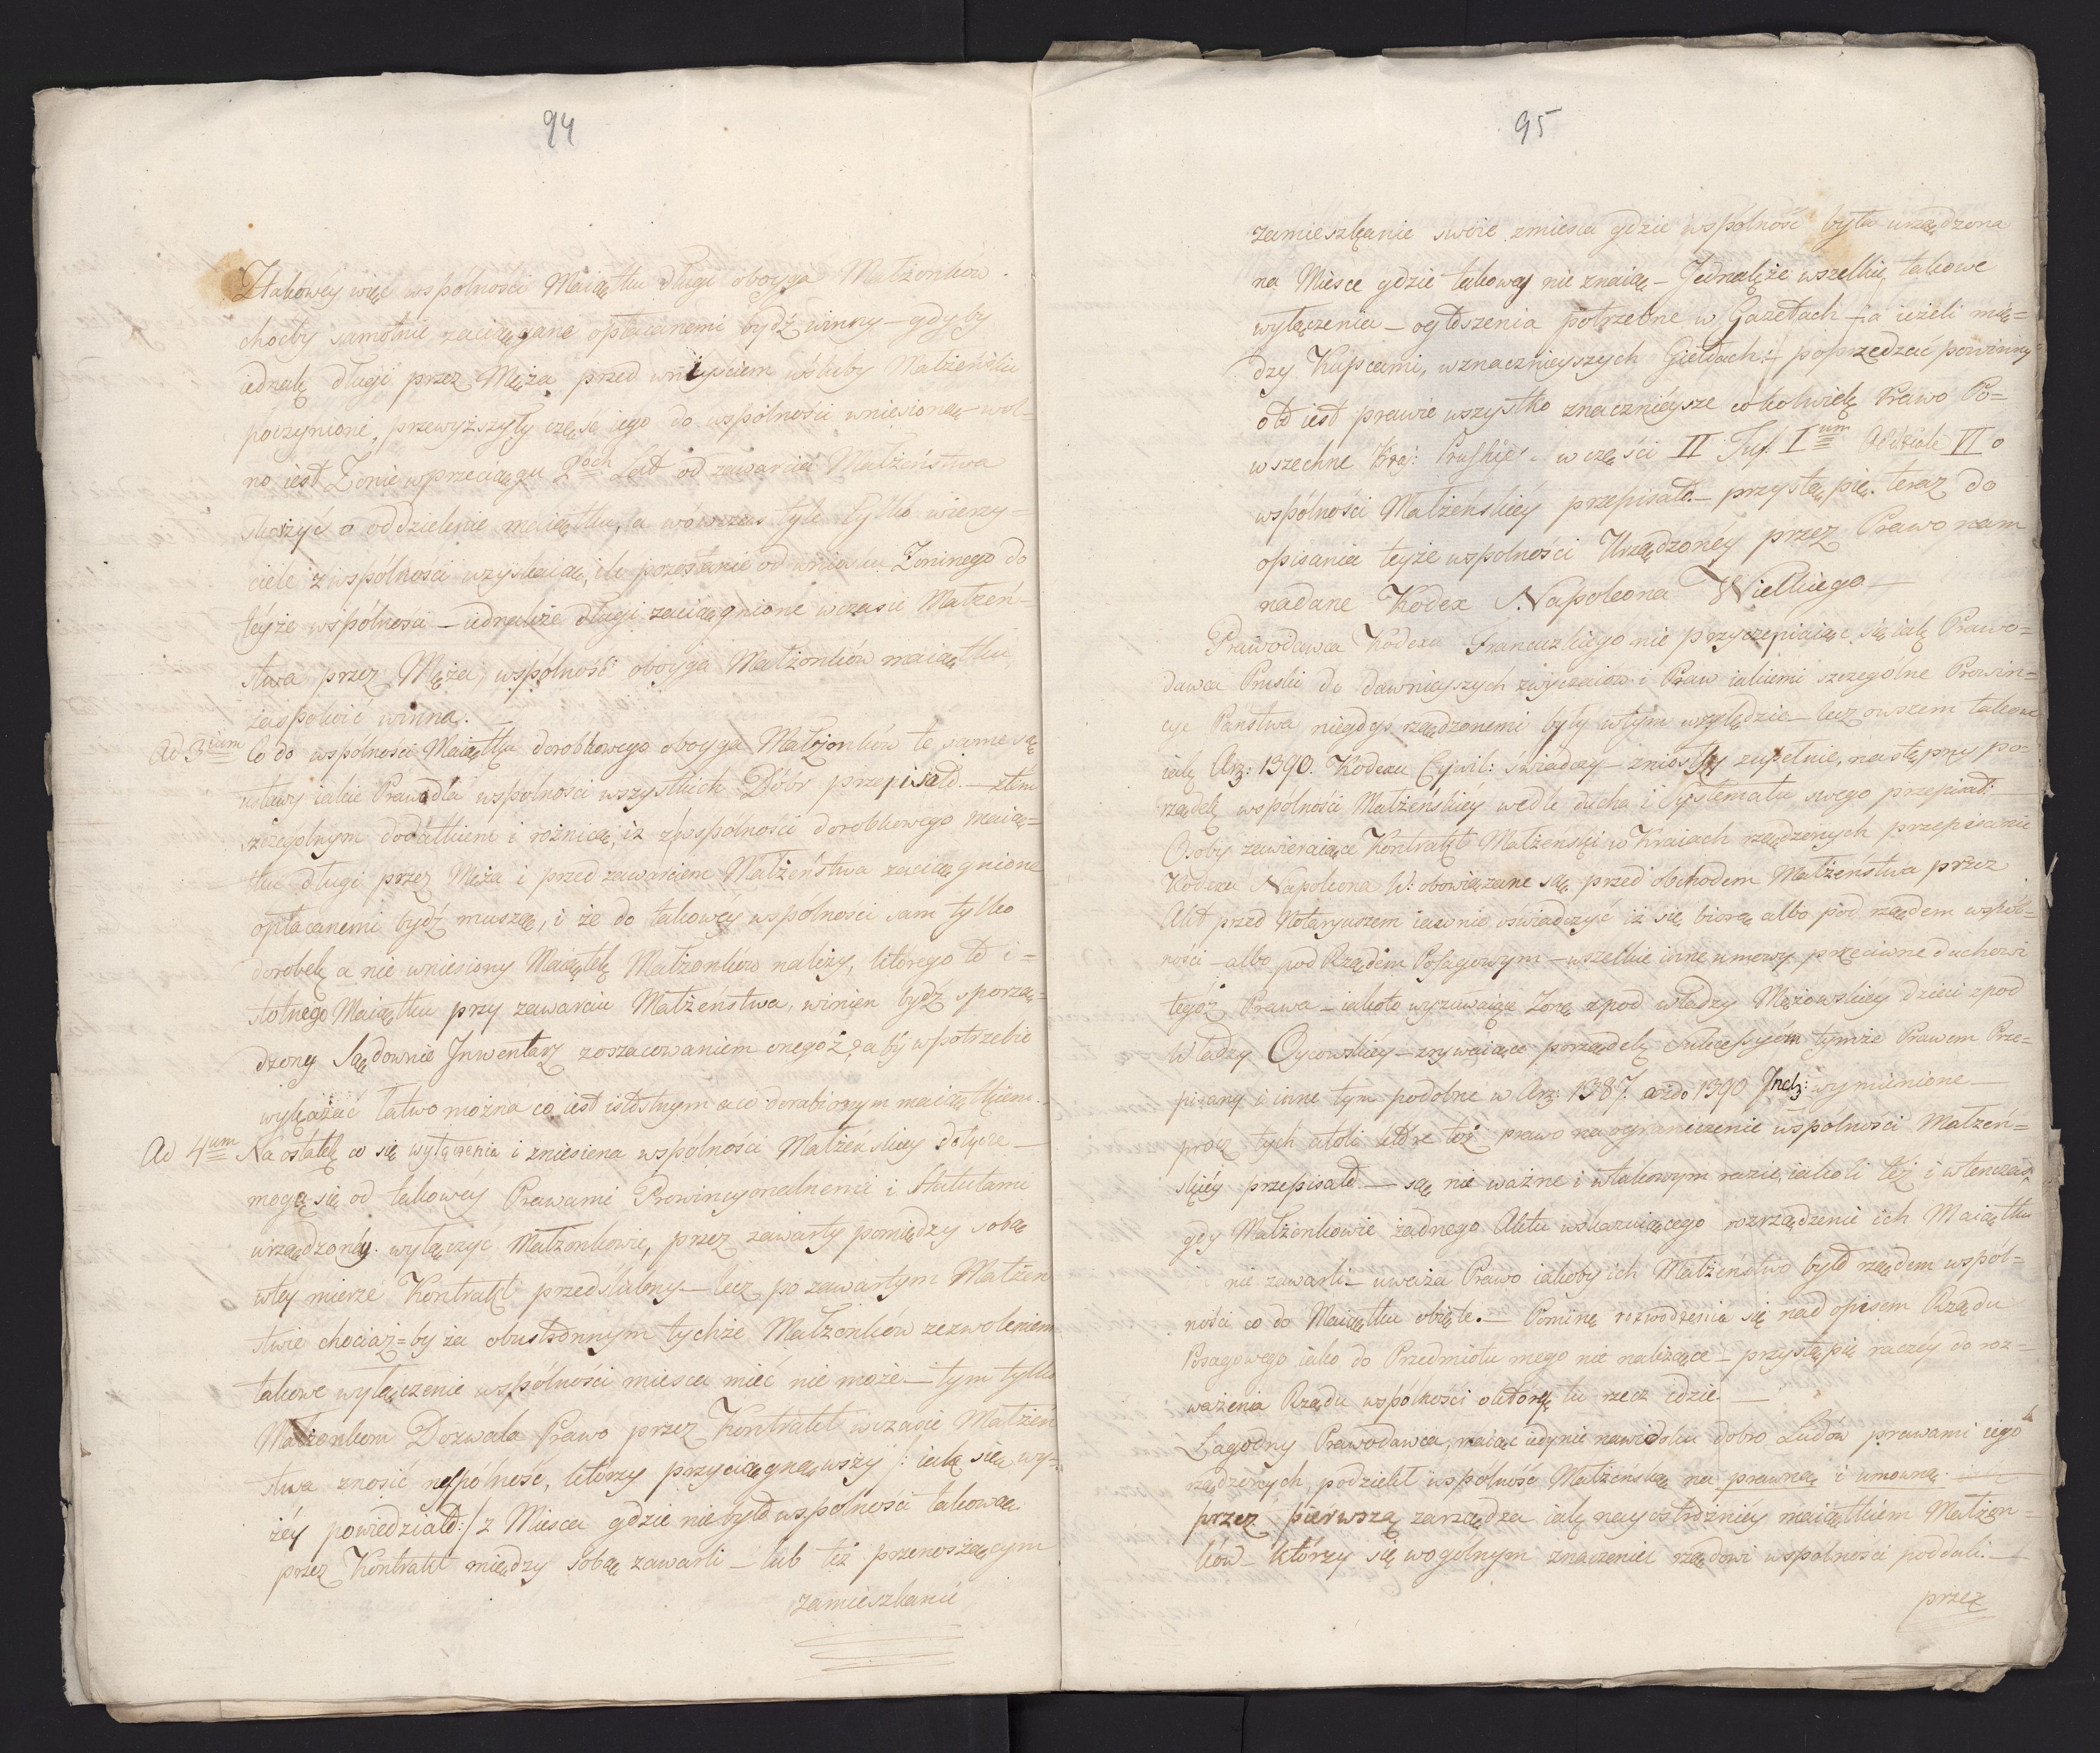 94
Ztakowéy więc wspólności Maiątku długi oboyga Małżonków
choćby samotnie zaciągane opłacanemi bydź winny – gdyby
iednak długi przez Męża przed wniyściem w śluby Małżeńskie
poczynione, przewyższyły część iego do wspólności wniesioną – wol-
no iest Żonie w przeciągu 2och Lat od zawarcia Małżeństwa
skarżyć o oddzielenie maiątku, a wówczas tyle tylko wierzy=
ciele z wspólności uzyskaią, ile pozostanie od wniosku Żoninego do
téyże wspólności – iednakże długi zaciągnione w czasie Małżeń-
stwa przez Męża, wspólność oboyga Małżonków maiątku
zaspokoić winna. –
Ad 3tium Co do wspólności Maiątku dorobkowego oboyga Małżonków te same są
ustawy iakie Prawo dla wspólności wszystkich Dóbr przepisało. – z tém
szczególnym dodatkiem i różnicą, iż z wspólności dorobkowego maią=
tku długi przez Męża i przed zawarciem Małżeństwa zaciągnione
opłacanemi bydź muszą, i że do takowéy wspolności sam tylko
dorobek a nie wniesiony Maiątek Małżonków należy, którego to i=
stotnego Maiątku przy zawarciu Małżeństwa, winien bydź sporzą=
dzony Sądownie Inwentarz z oszacowaniem onegóż, aby w potrzebie
wykazać łatwo można co iest istotnym a co dorabionym maiątkiem.
Ad 4um Na ostatek co się wyłączenia i zniesienia wspolności Małżeńskiey dotycze –
mogą się od takowey Prawami Prowincyonalnemi i Statutami
urządzony wyłączyć Małżonkowie, przez zawarty pomiędzy sobą
w tey mierze Kontrakt przedślubny – lecz po zawartym Małżeń
stwie chociaż=by za obustronnym tychże Małżonków zezwoleniem
takowe wyłączenie wspólności miesca mieć nie może – tym tylko
Małżonkom Dozwala Prawo przez Kontrakt w czasie Małżeń
stwa znosić wspólność, którzy przyciągnąwszy /: iak się wy-
żéy powiedziało :/ z Miesca gdzie nie było wspolności takową
przez Kontrakt między sobą zawarli – lub też przenoszącym
zamieszkanie
95
zamieszkanie swoie z miesca gdzie wspólność była urządzona
na Miesce gdzie takowey nie znaią – Jednakże wszelkie takowe
wyłączenia – ogłoszenia potrzebne w Gazetach /: a ieżeli mię=
dzy Kupcami, w znacznieyszych Giełdach :/ poprzedzać powinny
oto iest prawie wszystko znacznieysze cokolwiek Prawo Po=
wszechne Kraj: Pruskie w części II Tyt. Ium Oddziale VI o
wspólności Małżeńskiéy przepisało – przystąpię teraz do
opisania teyże wspolności Urządzonéy przez Prawo nam
nadane Kodex Napoleona Wielkiego –
Prawodawca Kodexu Francuzkiego nie przyczepiaiąc się iak Prawo=
dawca Pruski do dawnieyszych zwyczaiów i Praw iakiemi szczególne Prowin=
cye Państwa niegdyś rządzonemi były w tym względzie – lecz owszem takowe
iak Arz: 1390. Kodexu Cywil: swiadczy – zniosłszy zupełnie, następny po=
rządek wspólności Małżeńskiéy wedle ducha i Systematu swego przepisał: –
Osoby zawieraiące Kontrakt Małżeński w Kraiach rządzonych przepisami
Kodexu Napoleona W: obowiązane są przed obchodem Małżeństwa przez
Akt przed Notaryuszem iawnie oświadczyć iż się biorą albo pod rządem wspól=
ności – albo pod Rządem Posagowym – wszelkie inne umowy przeciwne duchowi
tegóż Prawa – iakoto wyzuwaiące Żonę z pod władzy Mężowskiey dzieci z pod
Władzy Oycowskiey – zrywaiące porządek Sukcessyów tymże Prawem Prze=
pisany i inne tym podobne w Arz: 1387. aż do 1390 Incl: wymienione –
prócz tych atoli które toż prawo na ograniczenie wspólności Małżeń=
skiéy przepisało – są nie ważne i w takowym razie iakoli też i wtenczas,
gdy Małżonkowie żadnego Aktu wskazuiącego rozrządzenie ich Maiątku
nie zawarli – uważa Prawo iakoby ich Małżeństwo było rządem wspól=
ności co do Maiątku obięte. – Pominę rozwodzenia się nad opisem Rządu
Posagowego iako do Przedmiotu mego nie należące – przystąpię raczéy do roz=
ważenia Rządu wspólności o którą tu rzecz idzie. –
Łagodny Prawodawca, maiąc iedynie na widoku dobro Ludów prawami iego
rządzonych, podzielił wspólność Małżeńską na prawną i umowną.
przez pierwszą zarządza iak nayostrożniéy maiątkiem Małżon=
ków – którzy się w ogólnym znaczeniu rządowi wspolności poddali. –
przez